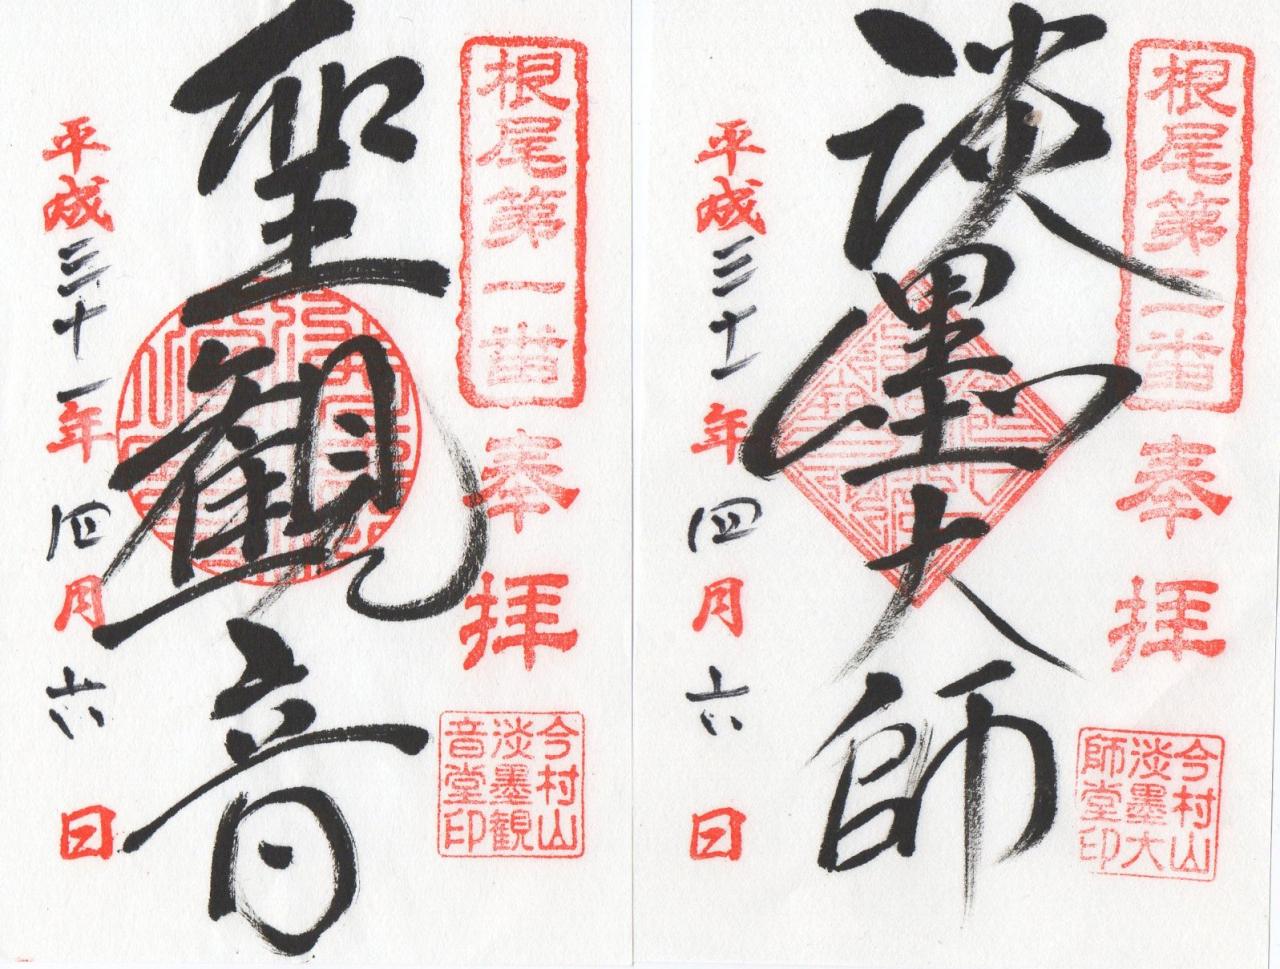 根尾第一番
奉拝
今村山
淡墨観
音堂印
聖観音
平成三十一年四月六日
根尾第二番
奉拝
今村山
淡墨大
師堂印
淡墨大師
平成三十一年四月六日